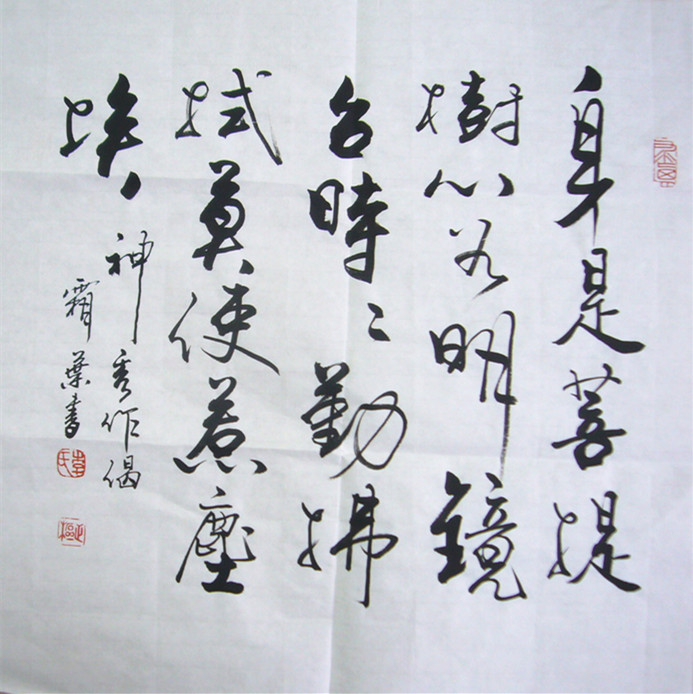 身是菩提
樹心若明鏡
台時〻勤拂
拭莫使惹塵
埃
神秀作偈
霜葉書